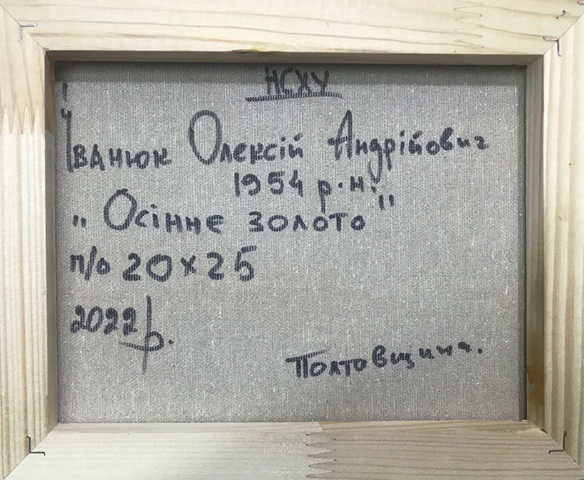 НСХУ
Іванюк Олексій Андрійович
1954 р.н.
„Осіннє золото"
п/о 20х25
2022 р.
Полтовщина.